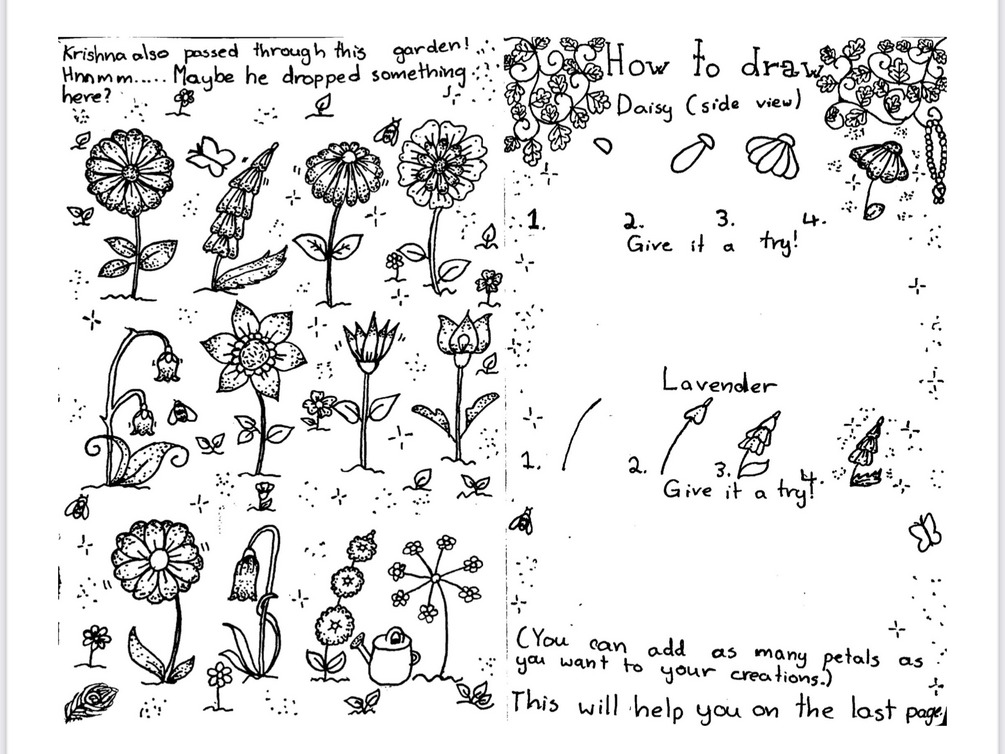 Krishna also passed through this garden!
Hmmm..... Maybe he dropped something
here?
How to draw
Daisy (side view)
1. 2. 3. 4.
Give it a try!
Lavender
1. 2. 3. 4.
Give it a try!
(You can add as many petals as
you want to your creations.)
This will help you on the last page!